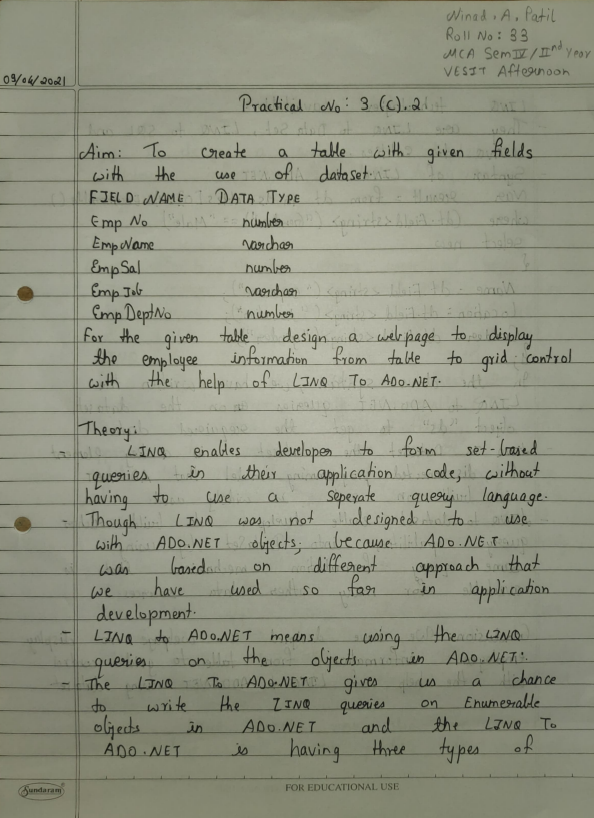 Ninad. A. Patil
Roll No: 33
MCA Sem IV / IInd Year
VESIT Afternoon
09/04/2021
Practical No: 3 (C).2
Aim: To create a table with given fields
with the use of dataset.
FIELD NAME DATA TYPE
Emp No number
EmpName varchar
EmpSal number
EmpJob varchar
EmpDeptNo number
For the given table design a webpage to display
the employee information from table to grid control
with the help of LINQ To ADO.NET.
Theory:
- LINQ enables developer to form set-based
queries in their application code, without
having to use a seperate query language.
- Though LINQ was not designed to use
with ADO.NET objects, because ADO.NET
was based on different approach that
we have used so far in application
development.
- LINQ to ADO.NET means using the LINQ
queries on the objects in ADO.NET.
- The LINQ To ADO.NET gives us a chance
to write the LINQ queries on Enumerable
objects in ADO.NET and the LINQ To
ADO.NET is having three types of
Sundaram
FOR EDUCATIONAL USE